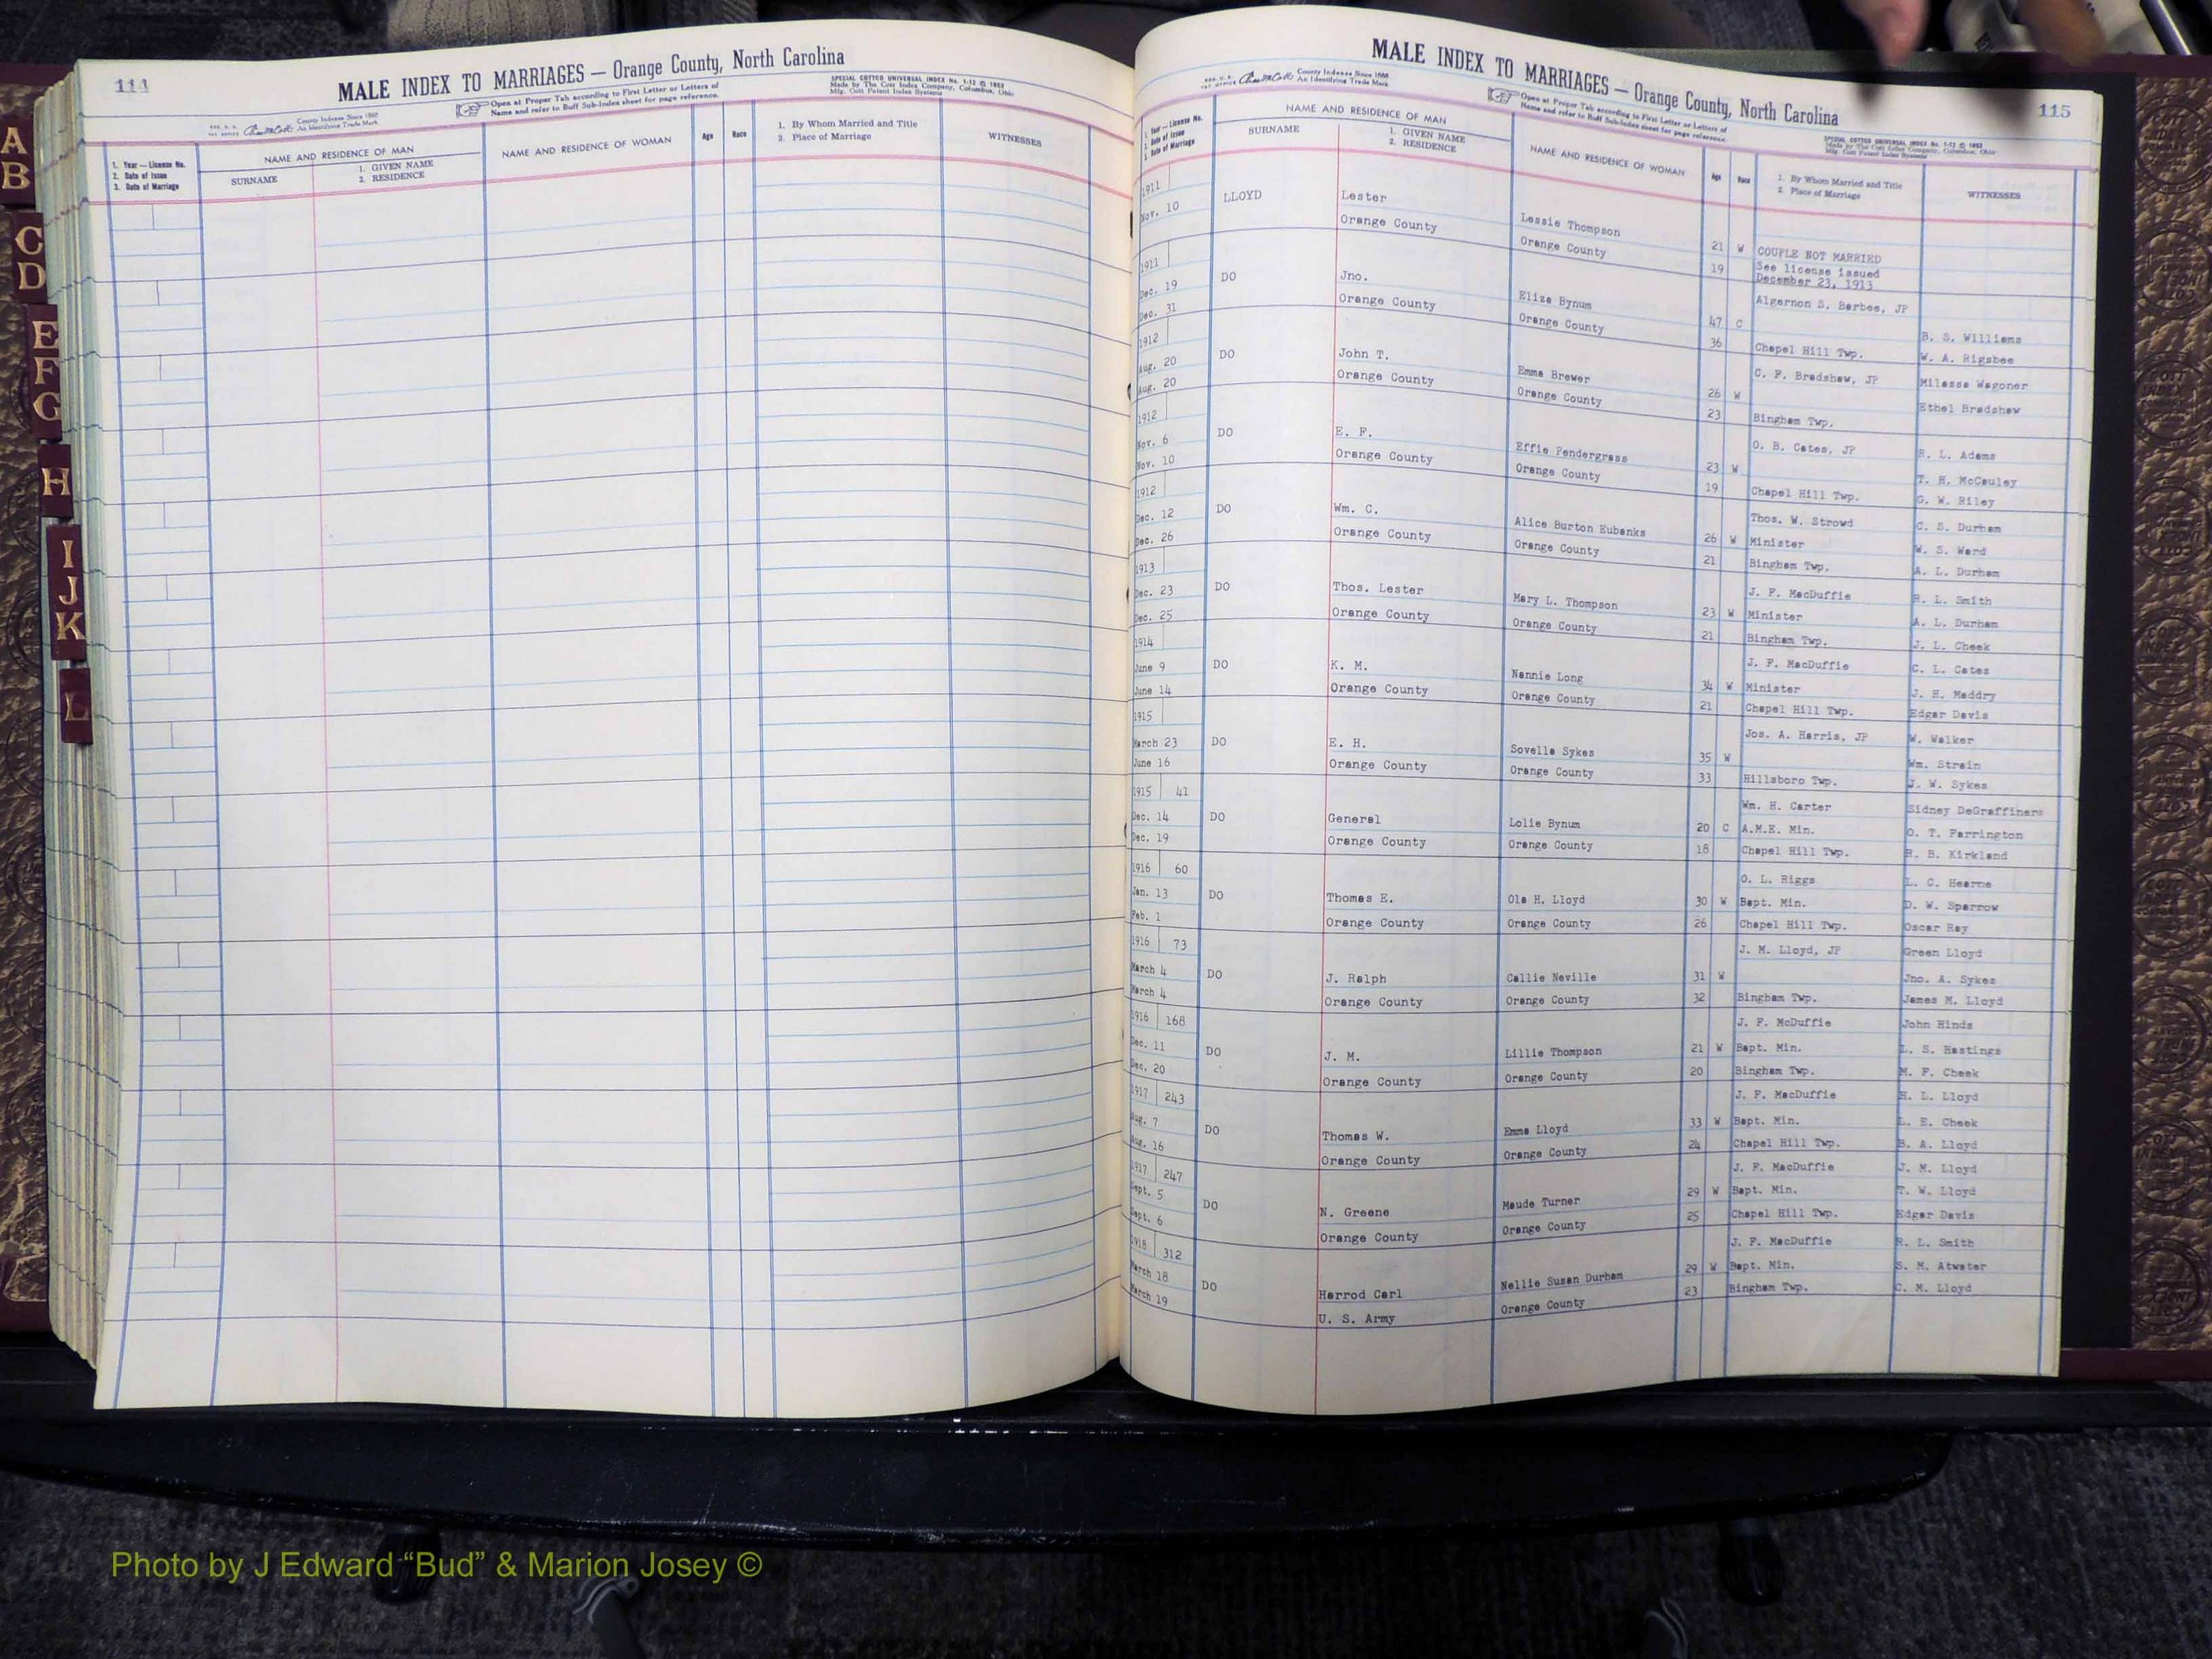 114
MALE INDEX TO MARRIAGES — Orange County, North Carolina
Open at Proper Tab according to First Letter or Letters of
Name and refer to Buff Sub-Index sheet for page reference.
SPECIAL COTTCO UNIVERSAL INDEX No. 1-12 © 1952
Made by The Cott Index Company, Columbus, Ohio
Mfg. Cott Patent Index Systems
County Indexes Since 1888
An Identifying Trade Mark
1. Year — License No.
2. Date of Issue
3. Date of Marriage
NAME AND RESIDENCE OF MAN
SURNAME
1. GIVEN NAME
2. RESIDENCE
NAME AND RESIDENCE OF WOMAN
Age
Race
1. By Whom Married and Title
2. Place of Marriage
WITNESSES
A
B
C
D
E
F
G
H
I
J
K
L
MALE INDEX TO MARRIAGES — Orange County, North Carolina
115
County Indexes Since 1888
An Identifying Trade Mark
Open at Proper Tab according to First Letter or Letters of
Name and refer to Buff Sub-Index sheet for page reference.
SPECIAL COTTCO UNIVERSAL INDEX No. 1-12 © 1952
Made by The Cott Index Company, Columbus, Ohio
Mfg. Cott Patent Index Systems
1. Year — License No.
2. Date of Issue
3. Date of Marriage
NAME AND RESIDENCE OF MAN
SURNAME
1. GIVEN NAME
2. RESIDENCE
NAME AND RESIDENCE OF WOMAN
Age
Race
1. By Whom Married and Title
2. Place of Marriage
WITNESSES
1911
Nov. 10 LLOYD Lester Lessie Thompson 21 W COUPLE NOT MARRIED
Orange County Orange County 19 See license issued
December 23, 1913
1911 Algernon S. Barbee, JP
Dec. 19 DO Jno. Eliza Bynum 47 C B. S. Williams
Dec. 31 Orange County Orange County 36 Chapel Hill Twp. W. A. Rigsbee
1912 C. P. Bradshaw, JP Milesse Wagoner
Aug. 20 DO John T. Emma Brewer 26 W Ethel Bradshaw
Aug. 20 Orange County Orange County 23 Bingham Twp.
1912 O. B. Cates, JP R. L. Adams
Nov. 6 DO E. F. Effie Pendergrass 23 W T. H. McCauley
Nov. 10 Orange County Orange County 19 Chapel Hill Twp. G. W. Riley
1912 Thos. W. Strowd C. S. Durham
Dec. 12 DO Wm. C. Alice Burton Eubanks 26 W Minister W. S. Ward
Dec. 26 Orange County Orange County 21 Bingham Twp. A. L. Durham
1913 J. F. MacDuffie R. L. Smith
Dec. 23 DO Thos. Lester Mary L. Thompson 23 W Minister A. L. Durham
Dec. 25 Orange County Orange County 21 Bingham Twp. J. L. Cheek
1914 J. F. MacDuffie C. L. Cates
June 9 DO K. M. Nannie Long 34 W Minister J. H. Maddry
June 14 Orange County Orange County 21 Chapel Hill Twp. Edgar Davis
1915 Jos. A. Harris, JP W. Walker
March 23 DO E. H. Sovella Sykes 35 W Wm. Strain
June 16 Orange County Orange County 33 Hillsboro Twp. J. W. Sykes
1915 41 Wm. H. Carter Sidney DeGraffinerd
Dec. 14 DO General Lolie Bynum 20 C A.M.E. Min. O. T. Farrington
Dec. 19 Orange County Orange County 18 Chapel Hill Twp. R. B. Kirkland
1916 60 O. L. Riggs L. C. Hearne
Jan. 13 DO Thomas E. Ola H. Lloyd 30 W Bapt. Min. D. W. Sparrow
Feb. 1 Orange County Orange County 26 Chapel Hill Twp. Oscar Ray
1916 73 J. M. Lloyd, JP Green Lloyd
March 4 DO J. Ralph Callie Neville 31 W Jno. A. Sykes
March 4 Orange County Orange County 32 Bingham Twp. James M. Lloyd
1916 168 J. F. McDuffie John Hinds
Dec. 11 DO J. M. Lillie Thompson 21 W Bapt. Min. L. S. Hastings
Dec. 20 Orange County Orange County 20 Bingham Twp. M. F. Cheek
1917 243 J. F. MacDuffie H. L. Lloyd
Aug. 7 DO Thomas W. Emma Lloyd 33 W Bapt. Min. L. E. Cheek
Aug. 16 Orange County Orange County 24 Chapel Hill Twp. B. A. Lloyd
1917 247 J. F. MacDuffie J. M. Lloyd
Sept. 5 DO N. Greene Maude Turner 29 W Bapt. Min. T. W. Lloyd
Sept. 6 Orange County Orange County 25 Chapel Hill Twp. Edgar Davis
1918 312 J. F. MacDuffie R. L. Smith
March 18 DO Harrod Carl Nellie Susan Durham 29 W Bapt. Min. S. M. Atwater
March 19 U. S. Army Orange County 23 Bingham Twp. C. M. Lloyd
Photo by J Edward “Bud” & Marion Josey ©